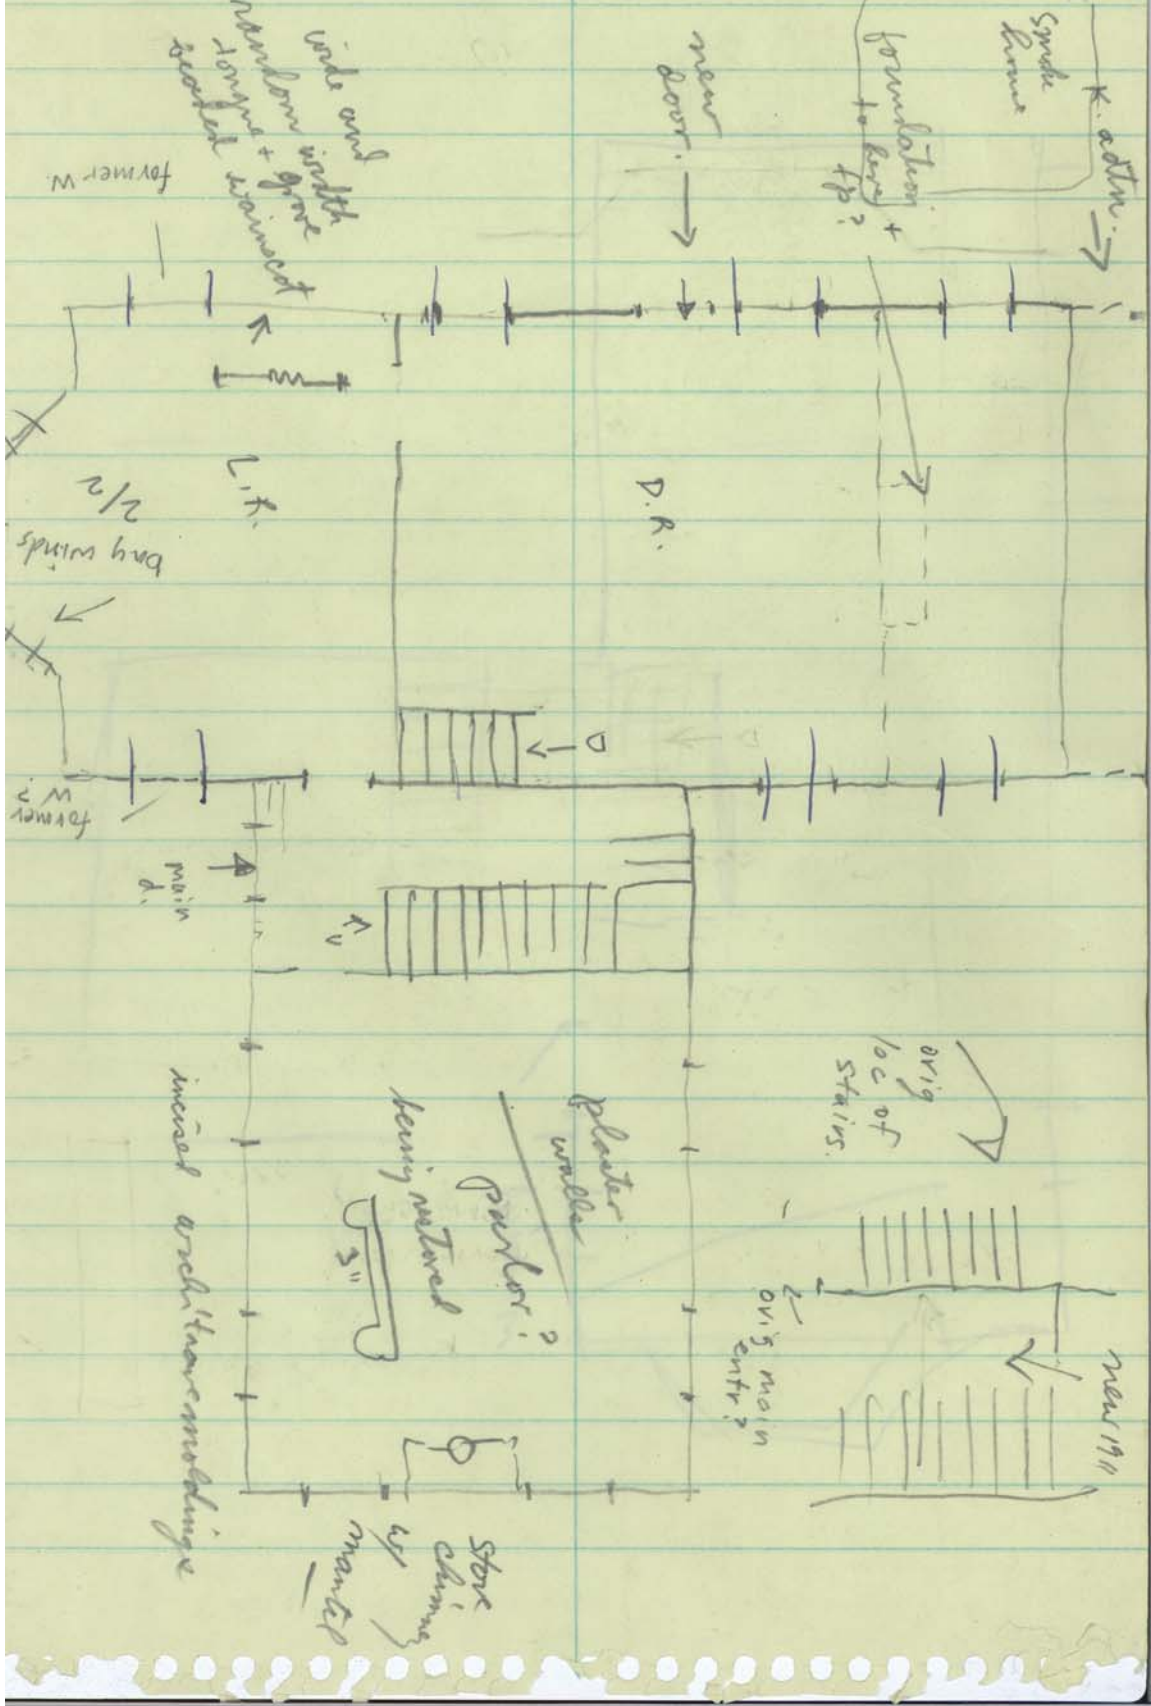 K. adtn.
Smoke
house
foundation
to here +
fp?
new
door.
wide and
random width
tongue + grove
beaded wainscot
former W.
L.R.
2/2
bay winds
D.R.
D
former
W?
main
d.
U
orig
loc of
stairs.
new 1911
orig main
entr?
plaster
walls
parlor?
being restored
3"
incised architrave moldings
stove
chimney
w/
mantel